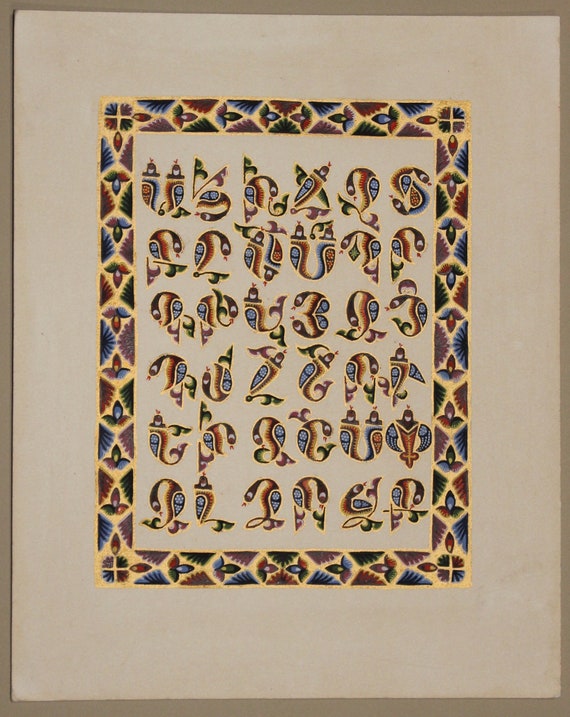 Ա Բ Գ Դ Ե Զ
Է Ը Թ Ժ Ի Լ
Խ Ծ Կ Հ Ձ Ղ
Ճ Մ Յ Ն Շ Ո
Չ Պ Ջ Ռ Ս Վ
Տ Ր Ց Ւ Փ Ք